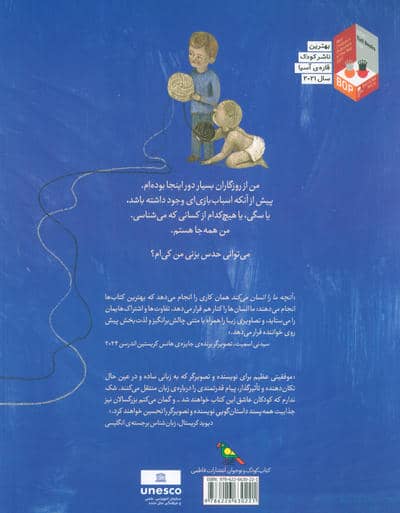 بهترین
ناشر کودک
قاره‌ی آسیا
سال ۲۰۲۱
BOP
من از روزگاران بسیار دور اینجا بوده‌ام.
پیش از آنکه اسباب بازی‌ای وجود داشته باشد،
یا سگی، یا هیچ‌کدام از کسانی که می‌شناسی.
من همه جا هستم.
می‌توانی حدس بزنی من کی‌ام؟
«آنچه ما را انسان می‌کند همان کاری را انجام می‌دهد که بهترین کتاب‌ها
انجام می‌دهند: ما انسان‌ها را کنار هم قرار می‌دهد، تفاوت‌ها و اشتراک‌هایمان
را می‌ستاید و تصاویری زیبا را همراه با متنی چالش‌برانگیز و لذت‌بخش پیش
روی خواننده قرار می‌دهد.»
سیدنی اسمیت، تصویرگر برنده‌ی جایزه‌ی هانس کریستین اندرسن ۲۰۲۴
«موفقیتی عظیم برای نویسنده و تصویرگر که به زبانی ساده و در عین حال
تکان‌دهنده و تأثیرگذار، پیام قدرتمندی را درباره‌ی زبان منتقل می‌کنند. شک
ندارم که کودکان عاشق این کتاب خواهند شد ـ و گمان می‌کنم بزرگسالان نیز
جذابیت همه‌پسند داستان‌گویی نویسنده و تصویرگر را تحسین خواهند کرد.»
دیوید کریستال، زبان‌شناس برجسته‌ی انگلیسی
کتاب کودک و نوجوان انتشارات فاطمی
unesco